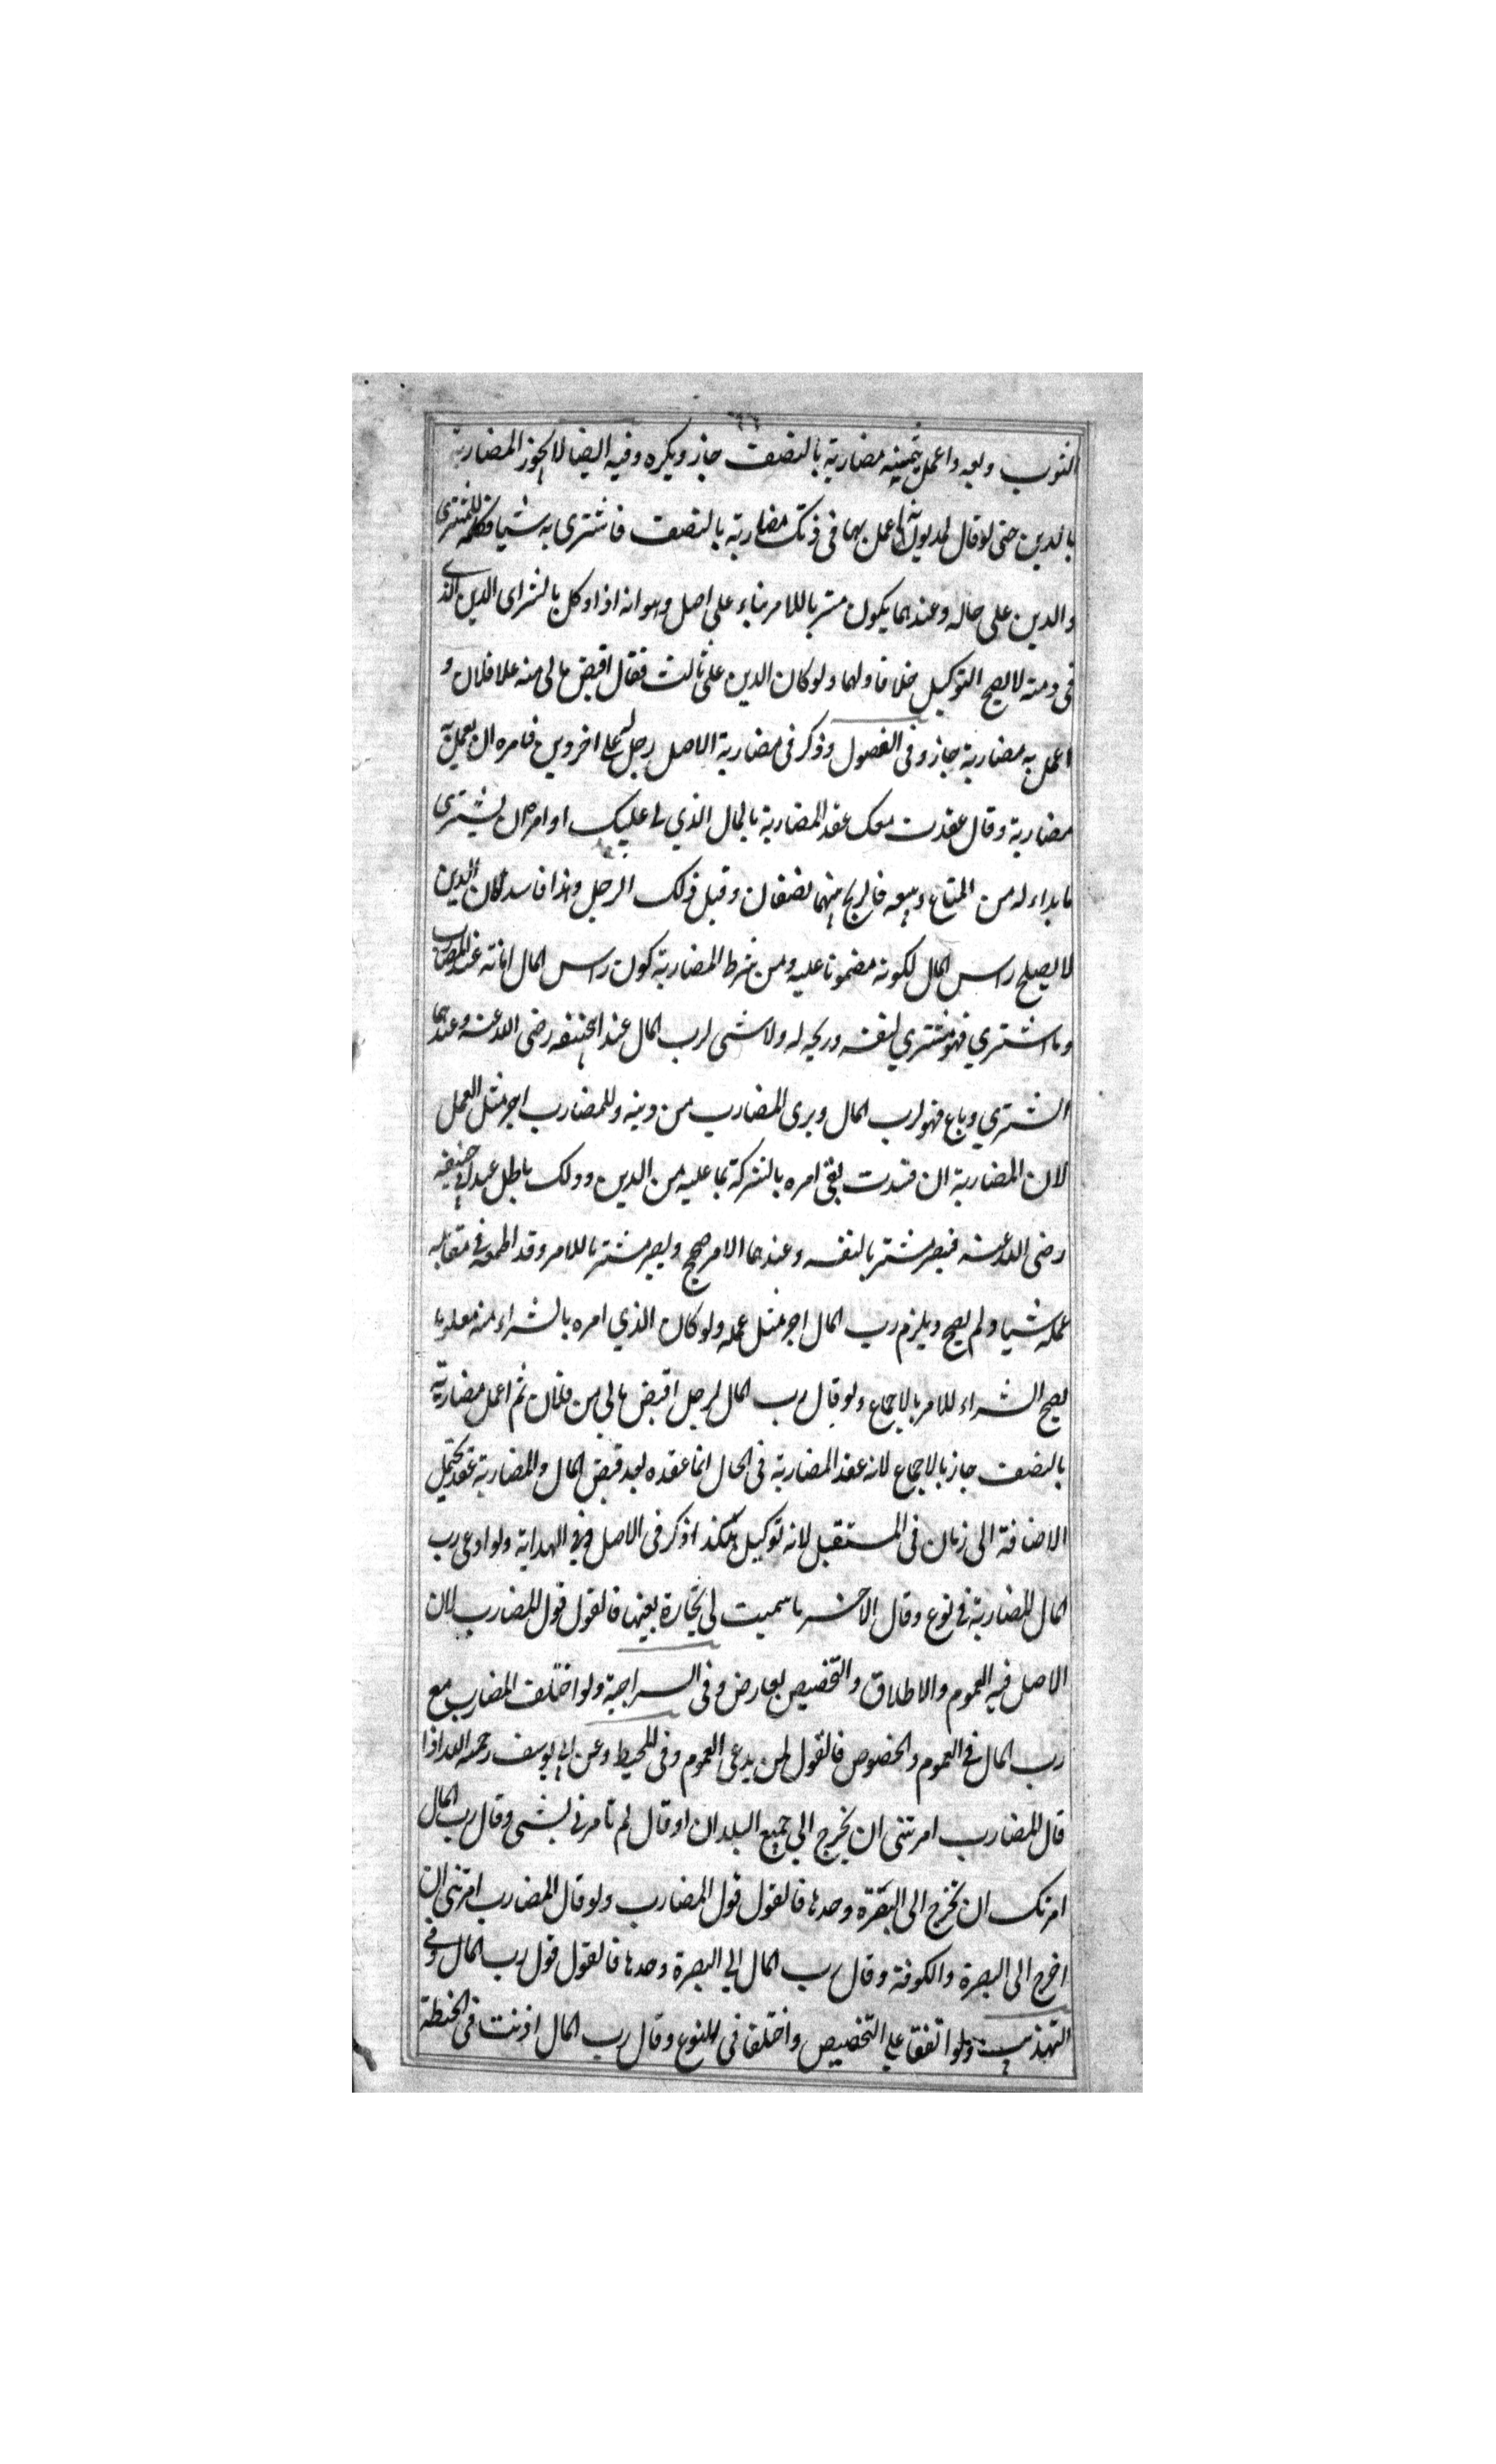 الثوب وبعه واعمل بثمنه مضاربة بالنصف جاز ويكره وفيه ايضا لا يجوز المضاربة
بالدين حتى لو قال لمديونه اعمل بها فى ذمتك مضاربة بالنصف فاشترى به شيا فكله للمشترى
والدين على حاله وعندهما يكون مشتريا للامر بناء على اصل وهو انه اذا وكل بالشراى الدين الذى
فى ذمته لا يصح التوكيل خلافا ولهما ولو كان الدين على ثالث فقال اقبض مالى منه على فلان و
اعمل به مضاربة جاز وفى الفصول وذكر فى مضاربة الاصل رجل له على اخر دين فامره ان يعمل به
مضاربة وقال عقدت معك عقد المضاربة بالمال الذي لى عليك او امره ان يشترى
ما بداء له من المتاع ويبيعه فالربح بينهما نصفان وقبل ذلك الرجل وهذا فاسد لان الدين
لا يصلح راس المال لكونه مضمونا عليه ومن شرط المضاربة كون راس المال امانة عند المضارب
وما اشتري فهو مشتري لنفسه وربحه له ولا شى لرب المال عند ابيحنيفه رضى الله عنه وعندهما
اشتري وباع فهو لرب المال وبرى المضارب من دينه وللمضارب اجر مثل العمل
لان المضاربة ان فسدت بقى امره بالشركة بما عليه من الدين وذلك باطل عند ابى حنيفه
رضى الله عنه فيصر مشتريا لنفسه وعندهما الامر صحيح ويصر مشتريا للامر وقد اطمعه فى مقابله
عمله شيا ولم يصح ويلزم رب المال اجر مثل عمله ولو كان الذي امره بالشراء منه معلوما
يصح الشراء للامر بالاجماع ولو قال رب المال لرجل اقبض مالى من فلان ثم اعمل مضاربة
بالنصف جاز بالاجماع لانه عقد المضاربة فى الحال انما عقده بعد قبض المال والمضاربة عقد يحتمل
الاضافة الى زمان فى المستقبل لانه توكيل هكذا ذكر فى الاصل وفى الهداية ولو ادعى رب
المال المضاربة فى نوع وقال الاخر ما سميت لى تجارة بعينها فالقول قول المضارب لان
الاصل فيه العموم والاطلاق والتخصيص بعارض وفى السراجية ولو اختلف المضارب مع
رب المال فى العموم والخصوص فالقول لمن يدعى العموم وفى المحيط وعن ابى يوسف رحمه الله اذا
قال المضارب امرتنى ان يخرج الي جميع البلدان او قال لم تامرنى بشى وقال رب المال
امرتك ان تخرج الى البصرة وحدها فالقول قول المضارب ولو قال المضارب امرتنى ان
اخرج الى البصرة والكوفة وقال رب المال الي البصرة وحدها فالقول قول رب المال وفى
التهذيب ولو اتفقا على التخصيص واختلفا فى النوع وقال رب المال اذنت فى الحنطة